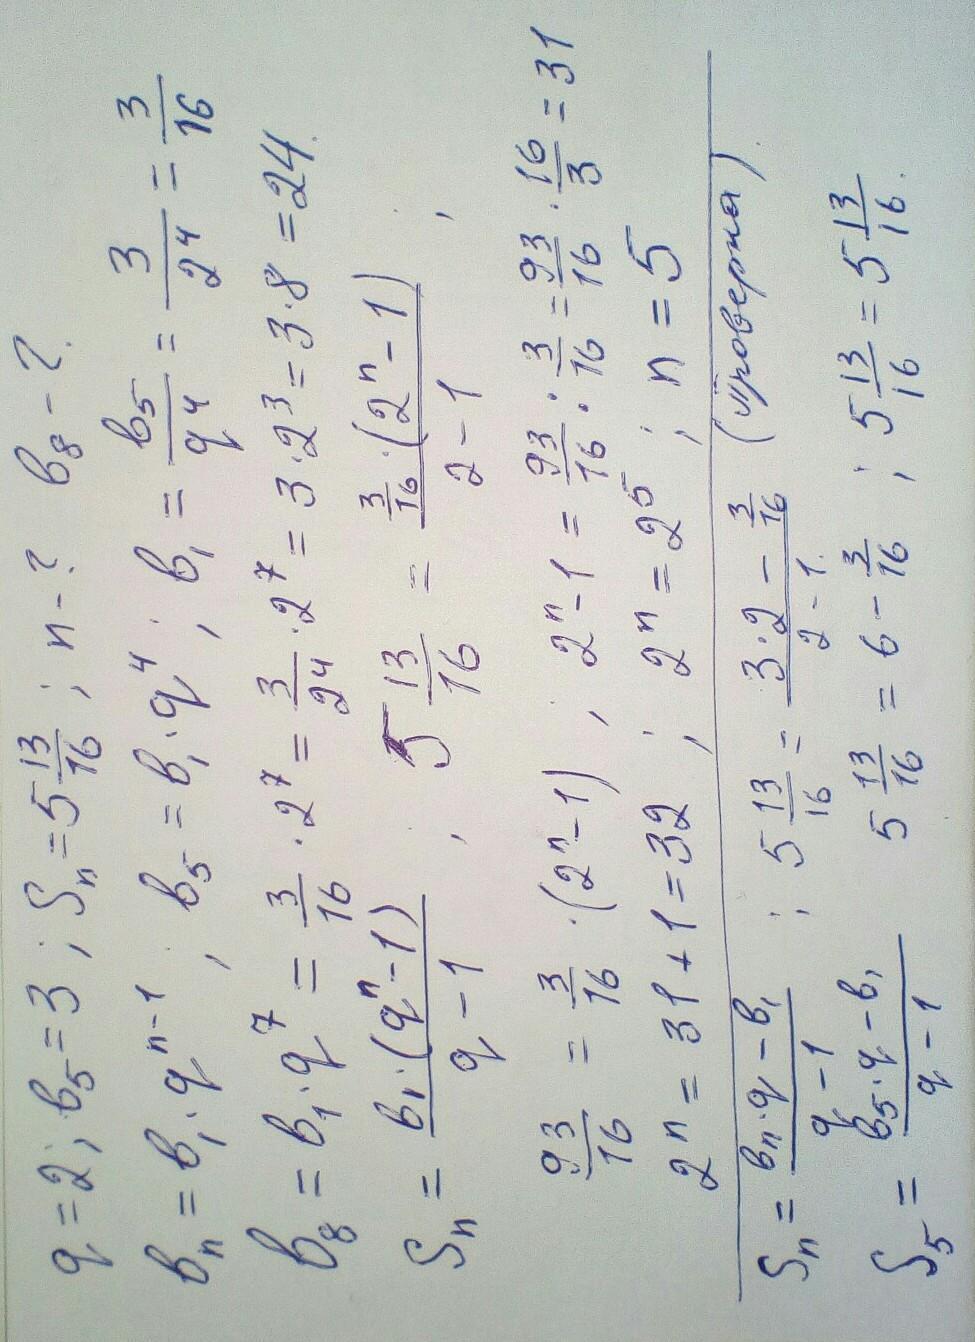 q = 2; b₅ = 3; Sₙ = 5 13/16; n - ? b₈ - ?
bₙ = b₁·qⁿ⁻¹, b₅ = b₁·q⁴; b₁ = b₅/q⁴ = 3/2⁴ = 3/16
b₈ = b₁·q⁷ = 3/16·2⁷ = 3/2⁴·2⁷ = 3·2³ = 3·8 = 24.
Sₙ = b₁·(qⁿ-1)/q-1, 5 13/16 = 3/16·(2ⁿ-1)/2-1;
93/16 = 3/16·(2ⁿ-1); 2ⁿ-1 = 93/16 : 3/16 = 93/16·16/3 = 31
2ⁿ = 31+1 = 32; 2ⁿ = 2⁵; n = 5
Sₙ = bₙ·q-b₁/q-1; 5 13/16 = 3·2-3/16/2-1. (проверка).
S₅ = b₅·q-b₁/q-1 5 13/16 = 6-3/16; 5 13/16 = 5 13/16.